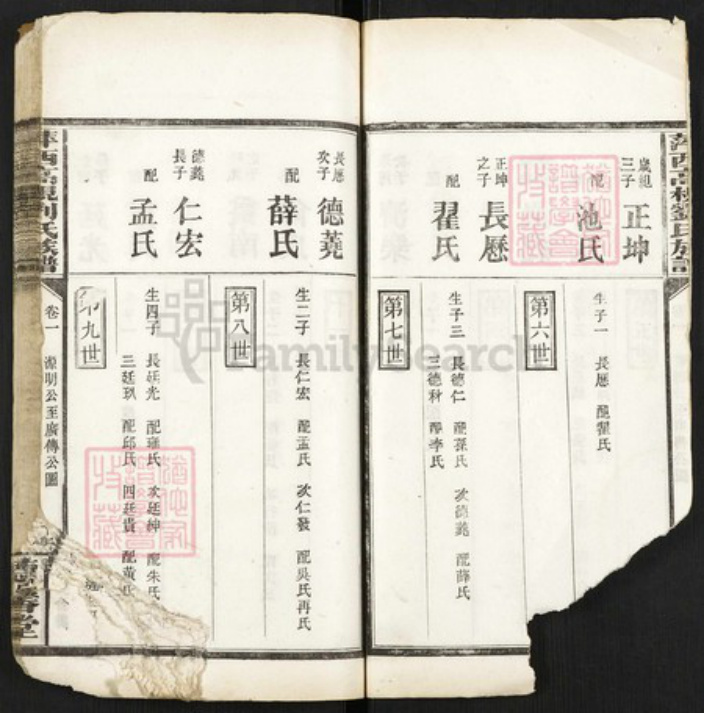 歲䂓三子 正坤
配 池氏
生子一 長厯 配翟氏
第六世
正坤之子 長厯
配 翟氏
生子三 長德仁 配孫氏 次德蕘 配薛氏
三德科 配李氏
第七世
長厯次子 德蕘
配 薛氏
生二子 長仁宏 配孟氏 次仁發 配吳氏再氏
第八世
德蕘長子 仁宏
配 孟氏
生四子 長廷光 配雍氏 次廷紳 配朱氏
三廷玖 配邱氏 四廷貴 配黃氏
第九世
卷一 源明公至廣傳公圖
FamilySearch